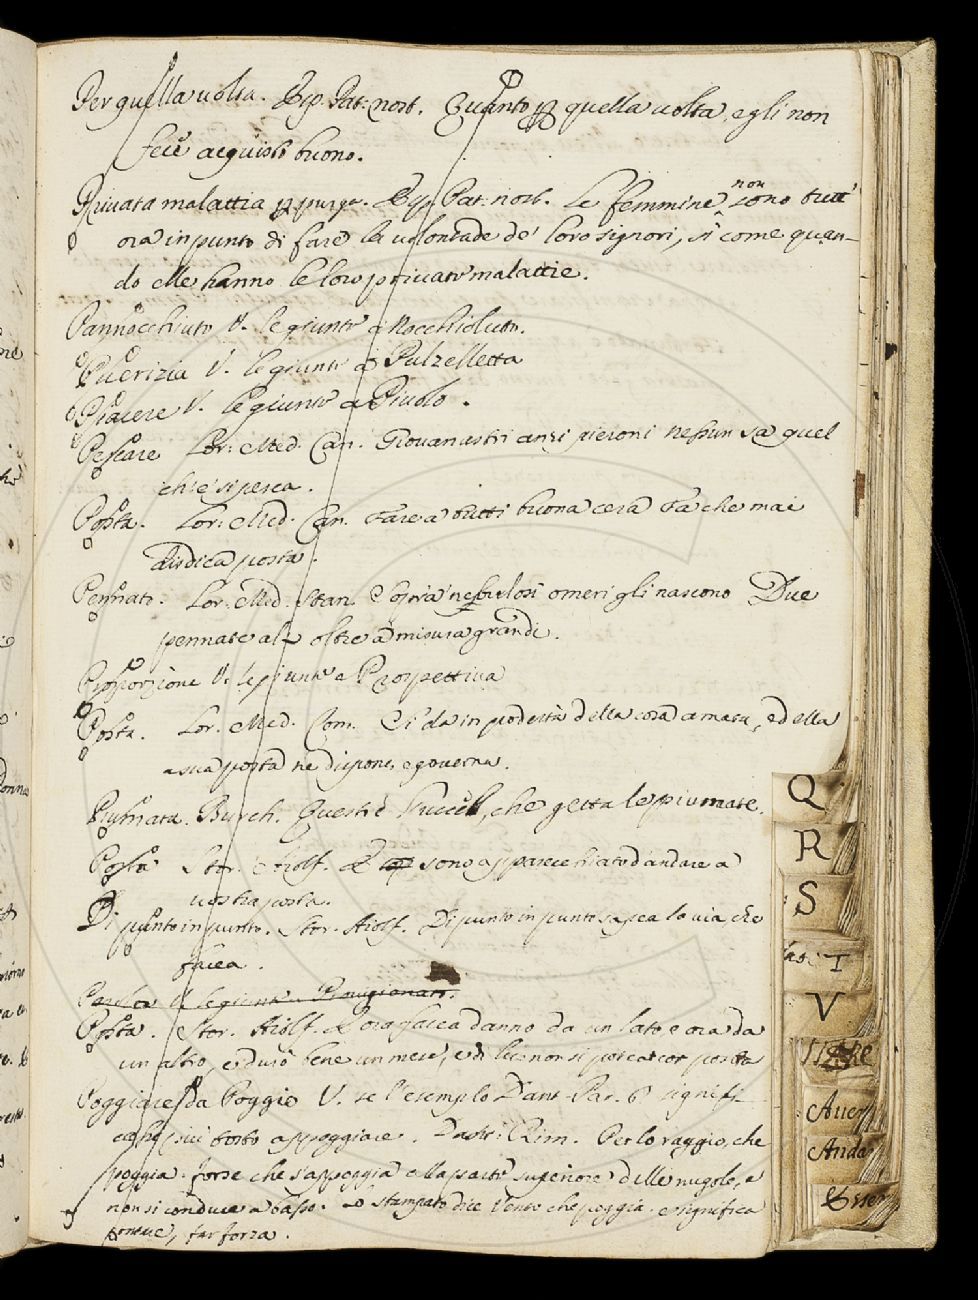 Per quella volta. Quanto ꝑ quella volta, egli non
fece acquisto buono.
Privata malattia ꝑ purga. Pat: nost. Le femmine non sono tutt'
ora in punto di fare la volontade de' loro signori, sì come quan-
do elle hanno le loro private malattie.
Pannocchiuto V. le giunte a Nocchioluto.
Puerizia V. le giunte a Pulzelletta
Piacere V. le giunte a Pivolo.
Pescare Lor: Med. Can. Giovanastri anzi pieroni nessun sa quel
che si pesca.
Posta. Lor: Med. Can. Fare a tutti buona cera Fa che mai
disdica posta.
Pennato. Lor: Med. Stan. E sopra nebulosi omeri gli nascono Due
pennate ale oltre a misura grandi.
Proporzione V. le giunte a Prospettiva
Posta. Lor. Med. Com. Si dà in podestà della cosa amata, ed ella
a sua posta ne dispone, e governa.
Piumata. Burch. Questi è che getta le piumate.
Posta Stor. Aiolf. E sono apparecchiato d'andare a
vostra posta.
Di punto in punto. Stor. Aiolf. Di punto in punto sapea la via, che
facea.
V. le giunte a
Posta. Stor. Aiolf. E ora facea danno da un lato e ora da
un altro, e durò bene un mese, e di lui non si potea tor posta
Poggiare, da Poggio V. se l'esemplo Dant. Par. 6 signifi
appoggiare. Rim. Per lo raggio, che
poggia. forse che s'appoggia alla parte superiore delle nugole, e
non si conduce a basso. Lo stampato dice Vento che poggia. e significa
potere, far forza.
Q
R
S
T
V
Aver
Anda
Esse